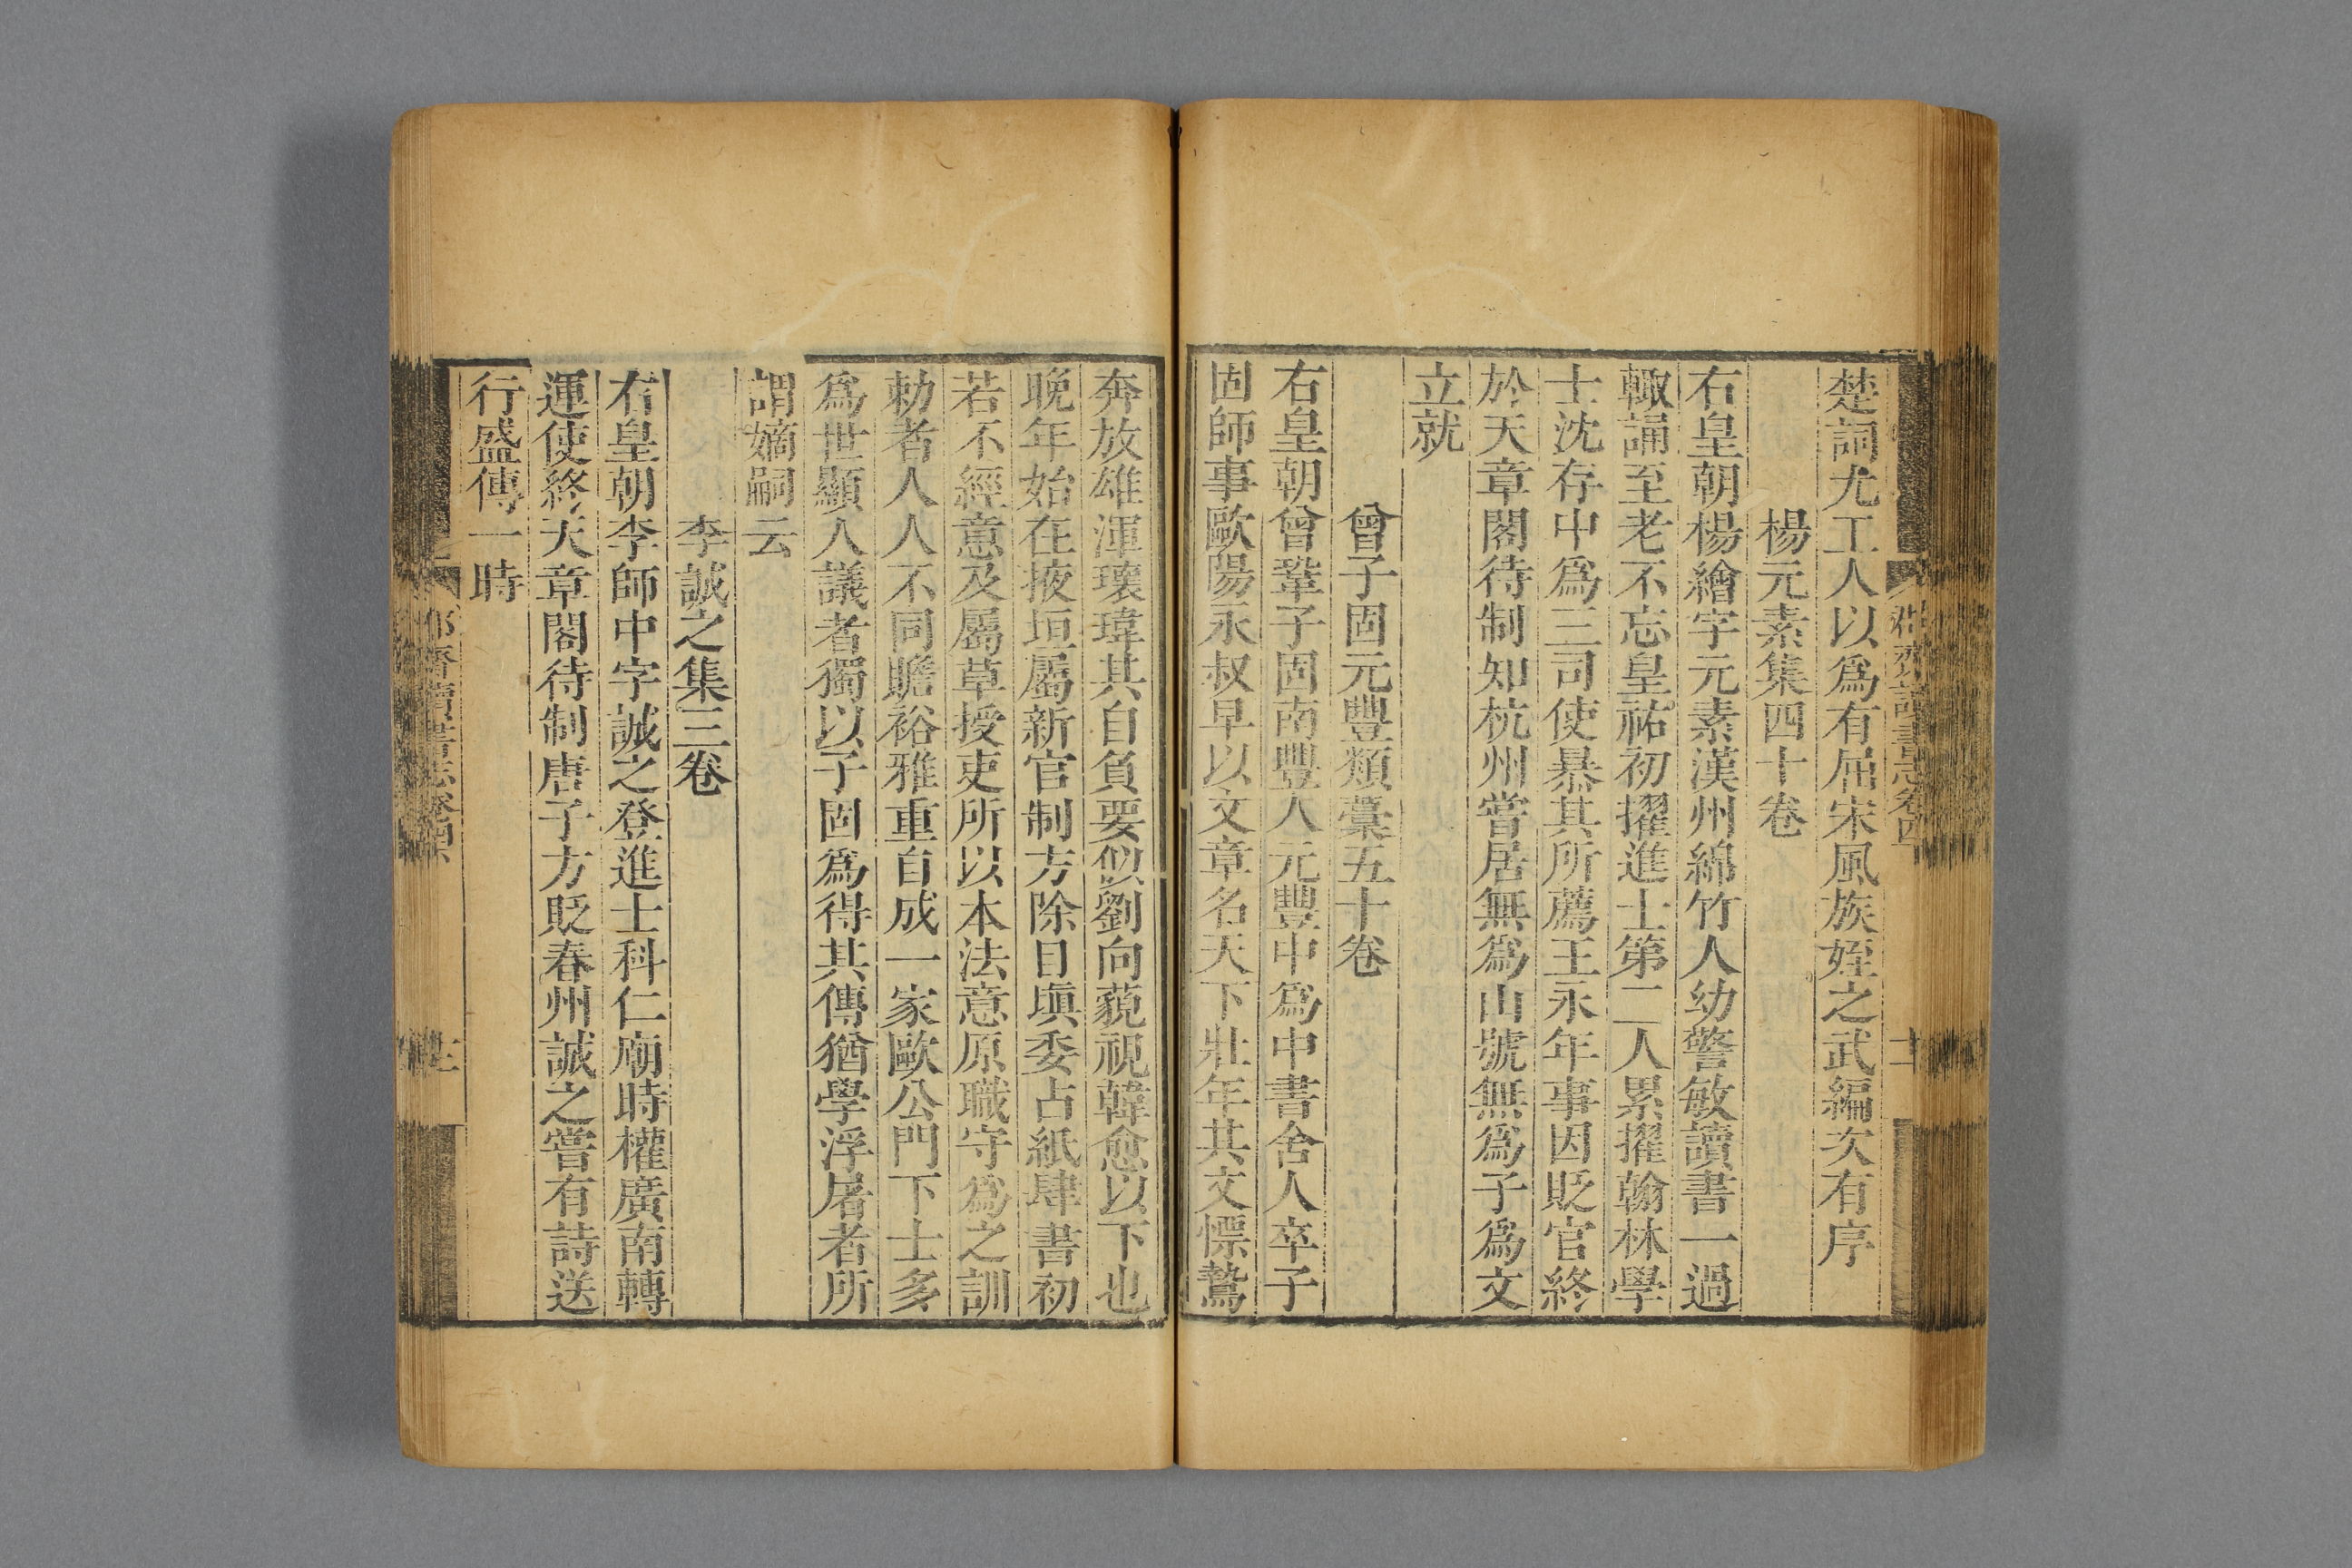 楚詞尤工人以爲有屈宋風族姪之武編次有序
楊元素集四十卷
右皇朝楊繪字元素漢州綿竹人幼警敏讀書一過
輙誦至老不忘皇祐初擢進士第二人累擢翰林學
士沈存中爲三司使暴其所薦王永年事因貶官終
於天章閣待制知杭州嘗居無爲山號無爲子爲文
立就
曾子固元豐類藁五十卷
右皇朝曾鞏子固南豐人元豐中爲中書舍人卒子
固師事歐陽永叔早以文章名天下壯年其文慓鷙
奔放雄渾瓌瑋其自負要似劉向藐視韓愈以下也
晚年始在掖垣屬新官制方除目塡委占紙肆書初
若不經意及屬草授吏所以本法意原職守爲之訓
勅者人人不同贍裕雅重自成一家歐公門下士多
爲世顯人議者獨以子固爲得其傳猶學浮屠者所
謂嫡嗣云
李誠之集三卷
右皇朝李師中字誠之登進士科仁廟時權廣南轉
運使終天章閣待制唐子方貶春州誠之嘗有詩送
行盛傳一時